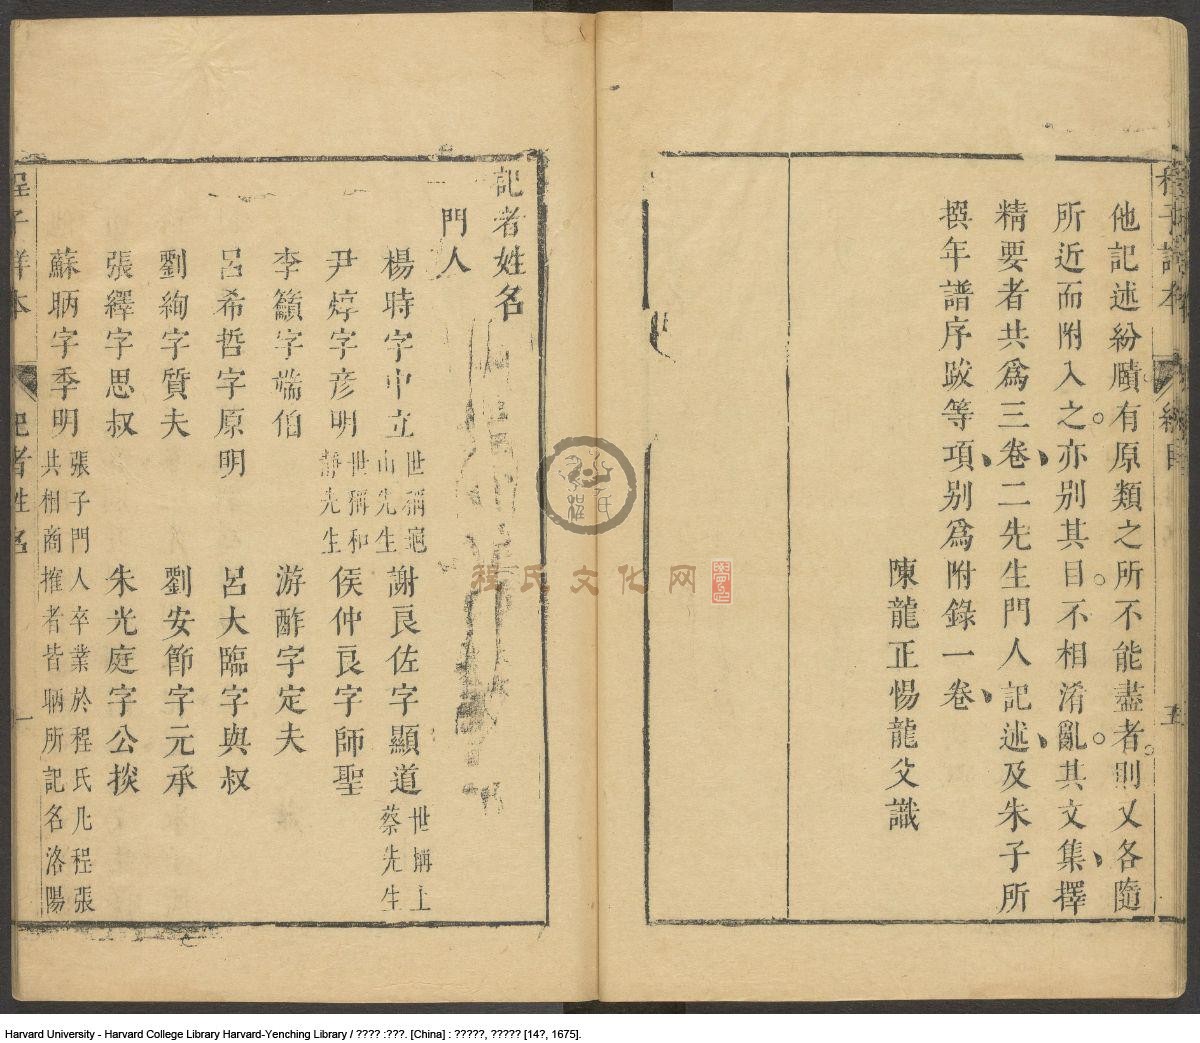 他記述紛賾有原類之所不能盡者則又各隨
所近而附入之亦別其目不相淆亂其文集擇
精要者共爲三卷二先生門人記述及朱子所
撰年譜序跋等項別爲附錄一卷
陳龍正惕龍父識
程子詳本
總目
五
記者姓名
門人
楊時字中立 世稱龜山先生 謝良佐字顯道 世稱上蔡先生
尹焞字彦明 世稱和靜先生 侯仲良字師聖
李籲字端伯 游酢字定夫
呂希哲字原明 呂大臨字與叔
劉絢字質夫 劉安節字元承
張繹字思叔 朱光庭字公掞
蘇昞字季明 張子門人卒業於程氏凡程張共相商搉者皆昞所記名洛陽
程子詳本
記者姓名
一
程氏文化网
Harvard University - Harvard College Library Harvard-Yenching Library / ???? :???. [China] : ?????, ????? [14?, 1675].